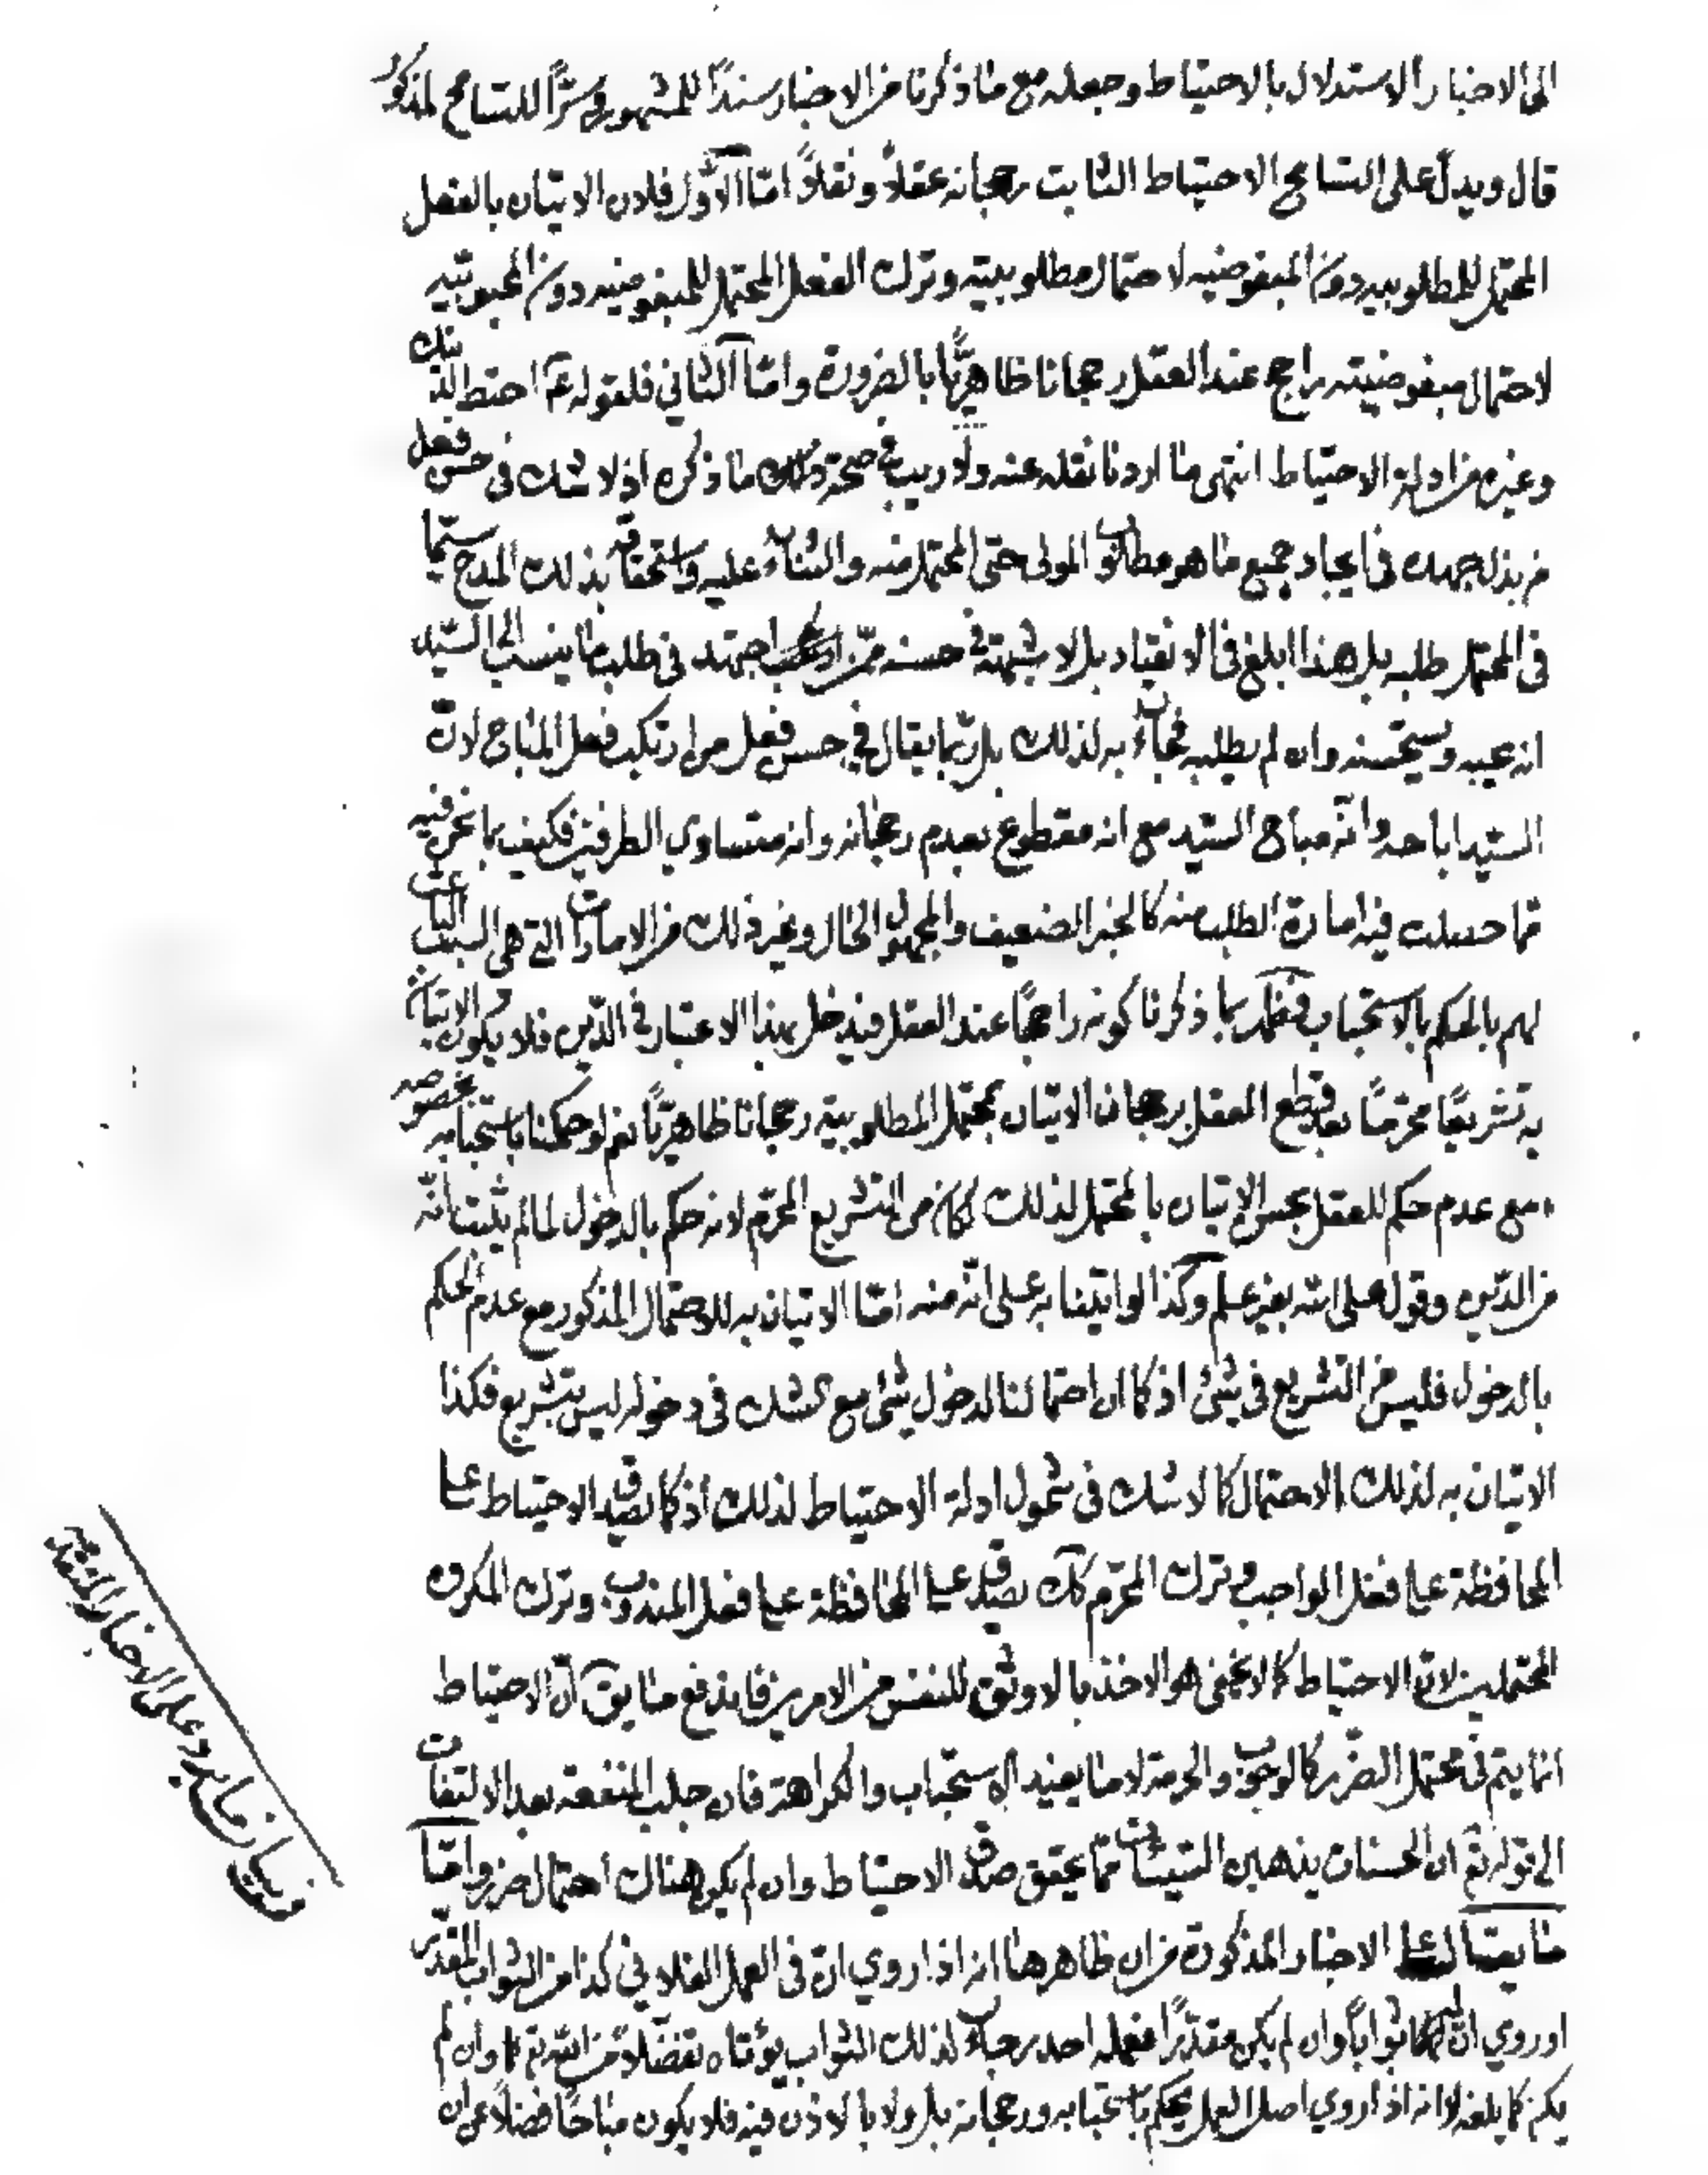 الى الاخبار الاستدلال بالاحتياط وجعله مع ما ذكرنا من الاخبار سندًا للمشهور وسرًّا للتسامح المذكور
قال ويدل على التسامح الاحتياط الثابت رجحانه عقلاً ونقلاً امّا الاوّل فلان الاتيان بالفعل
المحتمل للمطلوبيه دون المبغوضيه لاحتمال مطلوبيته وترك الفعل المحتمل للمبغوضيه دون المحبوبيّه
لاحتمال مبغوضيته راجح عند العقل رجحانا ظاهريًّا بالضرورة وامّا الثاني فلقوله ع احتط لدينك
وغيره من ادلة الاحتياط انتهى ما اردنا نقله عنه ولا ريب في صحة ما ذكره اذ لا شك في حسن فعل
من بذل جهده في ايجاد جميع ما هو مطلوب المولى حتى المحتمل منه والثناء عليه واستحقاقه بذلك المدح سيّما
في المحتمل طلبه بل هذا ابلغ في الانقياد بل لا شبهة في حسنه ممّن اجتهد في طلب ما ينسب الى السيّد
انه يحبه ويستحسنه وان لم يطلبه فجاء به لذلك بل ربّما يقال في حسن فعل من ارتكب فعل المباح لانّ
السيّد اباحه وانّه مباح السيّد مع انه مقطوع بعدم رجحانه وانه متساوي الطرفين فكيف بما نحن فيه
ممّا حصلت فيه امارة الطلب منه كالخبر الضعيف والمجهول الحال وغير ذلك من الامارات التي هي السبب الباعث
لهم بالحكم بالاستحباب فظهر بما ذكرنا كونه راجحًا عند العقل فيدخل بهذا الاعتبار في الدّين فلا يكون الاتيان
به تشريعًا محرّمًا بعد قطع العقل برجحان الاتيان بمحتمل المطلوبية رجحانا ظاهريًّا نعم لو حكمنا باستحبابه بخصوصه
مع عدم حكم للعقل بحسن الاتيان بالمحتمل لذلك لكان من التشريع المحرّم لانه حكم بالدخول لما لم يثبت انّه
من الدّين وقول على الله بغير علم وكذا لو اتينا به على انّه منه امّا الاتيان به للاحتمال المذكور مع عدم الحكم
بالدخول فليس من التشريع في شئ اذ كما ان احتمالنا لدخول شئ مع الشك في دخوله ليس بتشريع فكذا
الاتيان به لذلك الاحتمال كما لا شك في شمول ادلة الاحتياط لذلك اذ كما يصدق الاحتياط على
المحافظة على فعل الواجب وترك المحرّم كك يصدق على المحافظة على فعل المندوب وترك المكروه
المحتملين لانّ الاحتياط كما لا يخفى هو الاخذ بالاوثق للنفس من الامرين فاندفع ما يق انّ الاحتياط
انما يتم في محتمل الضّرر كالوجوب والحرمة لا ما يفيد الاستحباب والكراهة فان جلب المنفعة بعد الالتفات
الى قوله تع ان الحسنات يذهبن السّيئات ممّا يحقق صدق الاحتياط وان لم يكن هناك احتمال ضرر وامّا
ما يقال على الاخبار المذكورة من ان ظاهرها انه اذا روي انّ في العمل الفلاني كذا من الثواب المقدّر
او روي انّ له ثوابًا وان لم يكن مقدّرًا ففعله احد رجاء لذلك الثواب يؤتاه تفضّلاً من الله تع وان لم
يكن كما بلغه لا انه اذا روي اصل العمل يحكم باستحبابه ورجحانه بل ولا بالاذن فيه فلا يكون مباحًا فضلاً عن ان
في بيان ما يرد على الاخبار المتقدمة